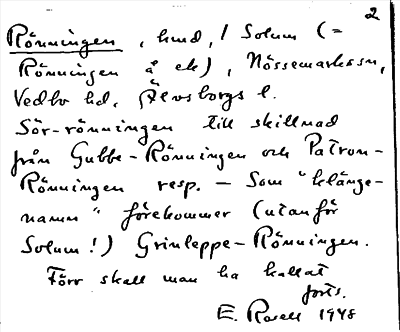 2
Rönningen, hmd, / Solum (=
Rönningen å ek), Nössemarks sn,
Vedbo hd, Älvsborgs l.
Sör-rönningen till skillnad
från Gubbe-Rönningen och Patron-
Rönningen resp. – Som "klänge-
namn" förekommer (utanför
Solum!) Grinleppe-Rönningen.
Förr skall man ha kallat
forts.
E. Rosell 1948